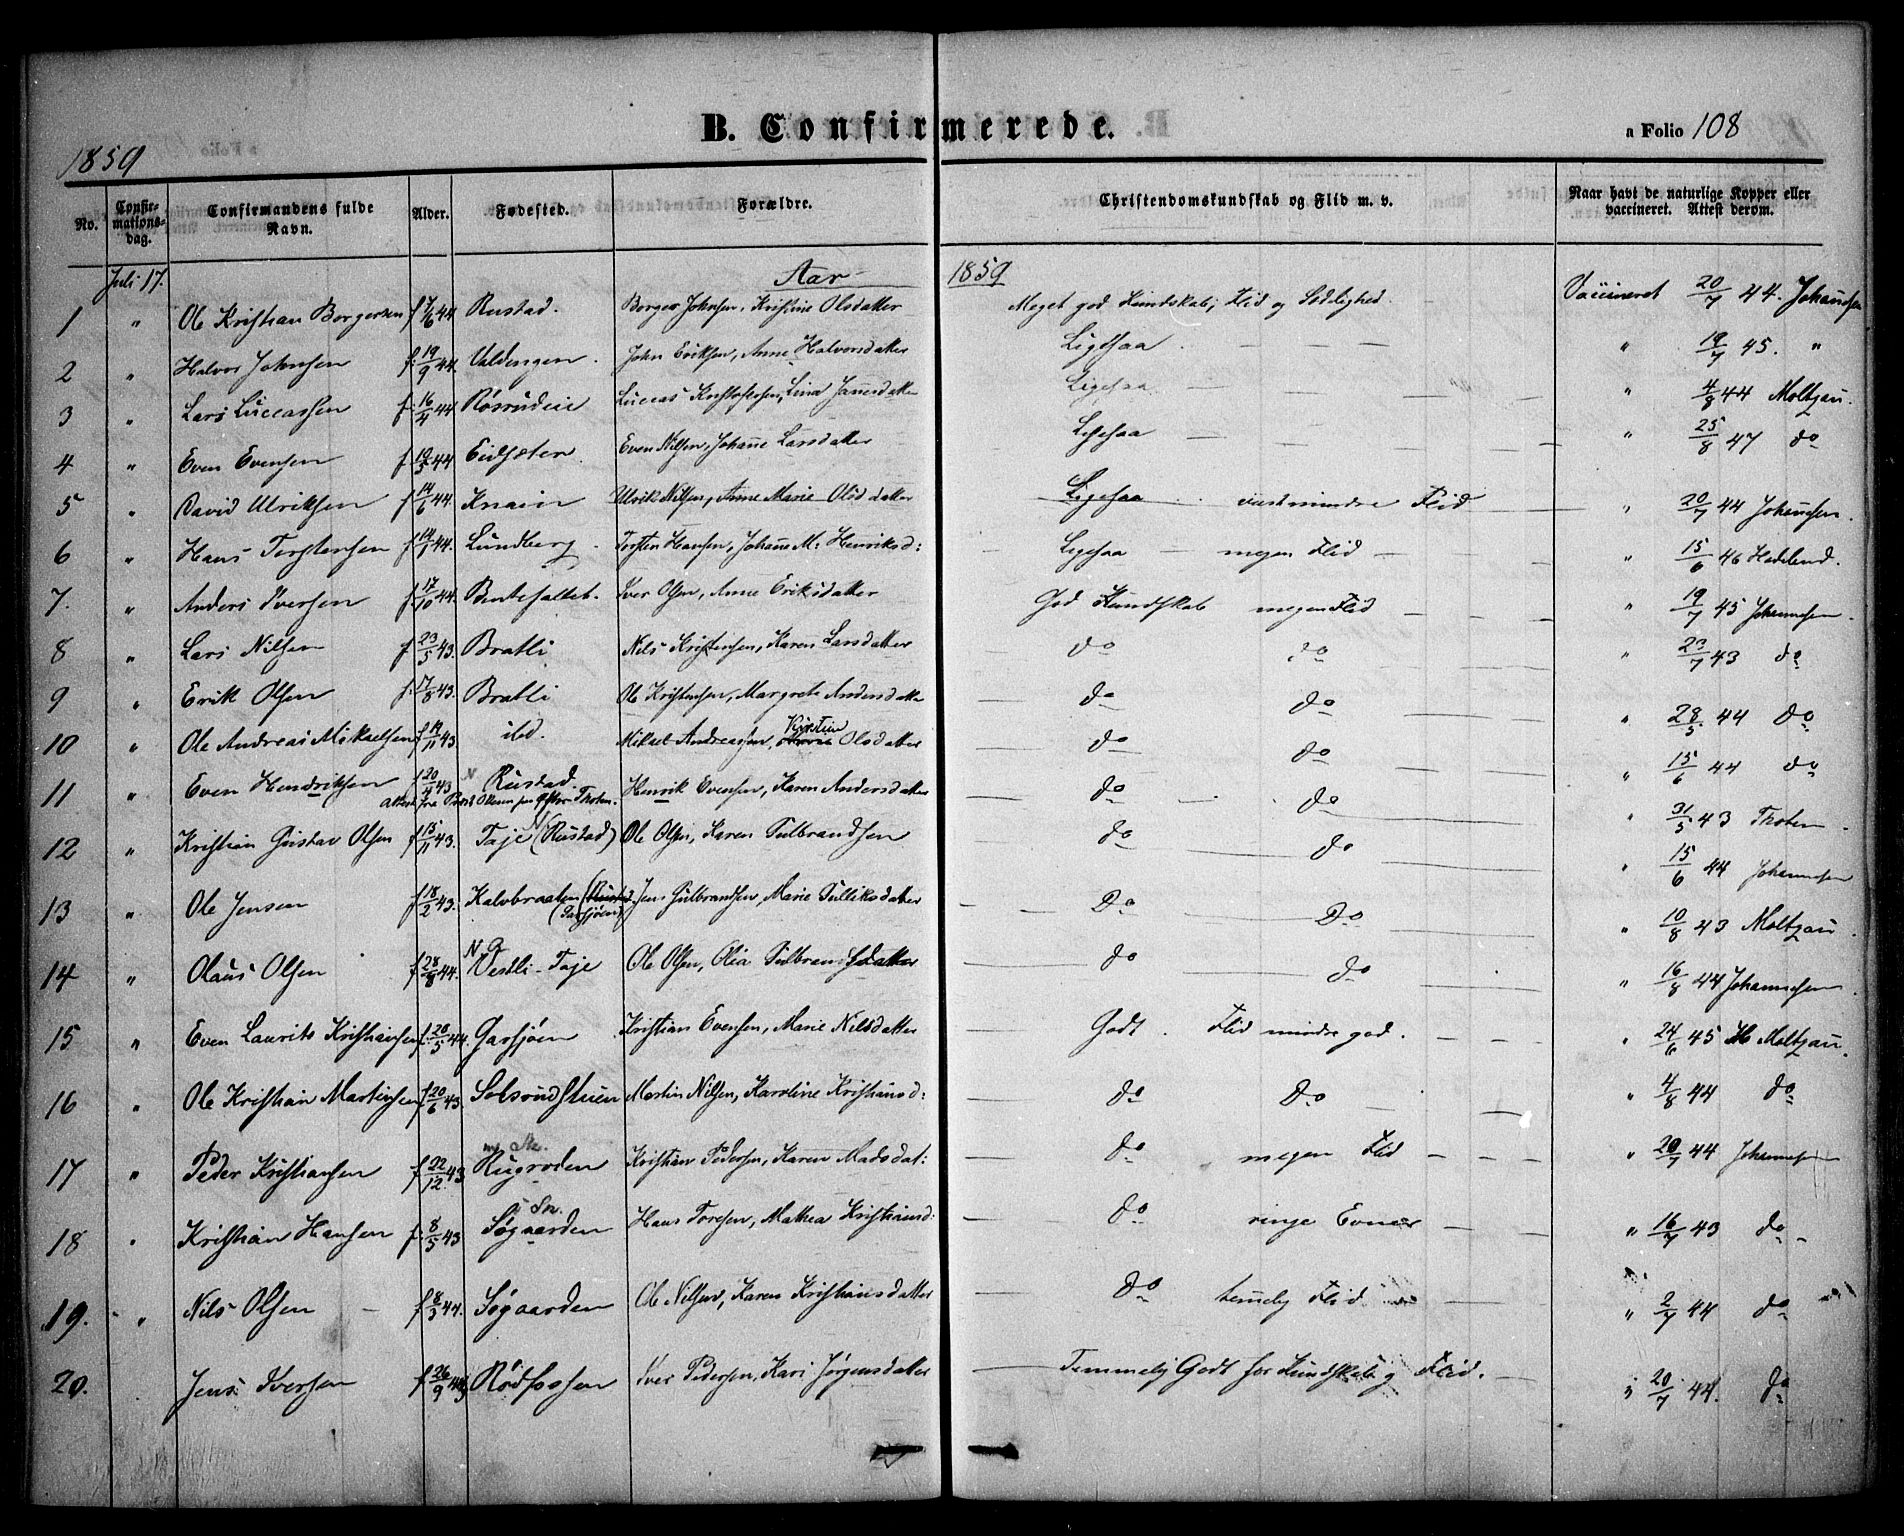 B. Confirmerede.
a Folio 108
1859
No. Confirmationsdag. Confirmandens fulde Navn. Alder. Fødested. Forældre. Christendomskundskab og Flid m. v. Naar havt de naturlige Kopper eller vaccineret. Attest derom.
Juli 17. Aar 1859
1 " Ole Kristian Borgersen f 7/6 44 Rustad. Borger Johnsen, Kristine Olsdatter Meget god Kundskab, Flid og Sædlighed. Vaccineret 20/7 44. Johannesen
2 " Halvor Johnsen f. 19/9 44. Valdengen. John Eriksen, Anne Halvorsdatter Ligesaa " 19/7 45. "
3 " Lars Luccassen f. 16/4 44 Røsrudeie Luccas Kristofersen, Lina Jansdatter Ligesaa " 4/8 44 Moltzau.
4 " Even Evensen f. 19/3 44 Eidsæter. Even Nilsen, Johanne Larsdatter Ligesaa " 25/8 47 do
5 " David Ulriksen f 14/6 44. Knain Ulrik Nilsen, Anne Marie Olsdatter Ligesaa mindre Flid " 20/7 44 Johannsen.
6 " Hans Torstensen f 14/1 44. Lundberg Torsten Hansen, Johanne M: Henriksd: Ligesaa megen Flid " 15/6 46 Hadeland.
7. " Anders Iversen f. 17/10 44. Bentefaltet. Iver Olsen, Anne Eriksdatter God Kundskab megen Flid " 19/7 45 Johannesen.
8 " Lars Nilsen f 23/5 43. Bratli Nils Kristensen, Karen Larsdatter do do " 23/7 43 do
9 " Erik Olsen f. 17/8 43. Bratli Ole Kristensen, Margrete Andersdatter do do " 28/5 44 do
10 " Ole Andreas Mikaelsen f 12/11 43 ibd. Mikael Andreassen, Kirstin Olsdatter do do " 15/6 44 do
11 " Even Hendriksen f 20/4 43 N Rustad. Henrik Evensen, Karen Andersdatter do do " 31/5 43 Thoten
Attest fra Præst Thoten.
12 " Kristian Gustav Olsen f 15/11 43. Taje (Rustad) Ole Olsen, Karen Gulbrandsen do do " 15/6 44 Johannesen
13 " Ole Jensen f 18/2 43. Kalvbraaten (Rustad Jens Gulbrandsen, Marie Gulliksdatter Do Do " 10/8 43 Moltzau
(Garsjøen)
14 " Olaus Olsen f 28/8 44. Vestli-Taje Ole Olsen, Olia Gulbrandsdatter do do " 16/8 44 Johannesen
15 " Even Laurits Kristiansen f. 20/5 44. Garsjøen Kristian Evensen, Marie Nilsdatter Godt. Flid mindre god. " 24/6 45 Moltzau.
16 " Ole Kristian Martinsen f. 20/6 43. Solsrudstuen Martin Nilsen, Karoline Kristiansd: do Do " 4/8 44 do
17 " Peder Kristiansen f 22/12 43 Rugroden Kristian Pedersen, Karen Madsdat: do megen Flid " 20/7 44 Johannesen
18 " Kristian Hansen f. 8/5 43 Søgaarden Hans Toresen, Mathea Kristiansd: do ringe Evner " 16/7 43 do
19. " Nils Olsen f 8/3 44. Søgaarden Ole Nilsen, Karen Kristiansdatter do temelig Flid " 2/7 44 do
20. Jens Iversen f 26/9 Rødfossen Iver Pedersen, Kari Jørgensdatter Temmelig Godt for Kundskab og Flid. " 20/7 44. do